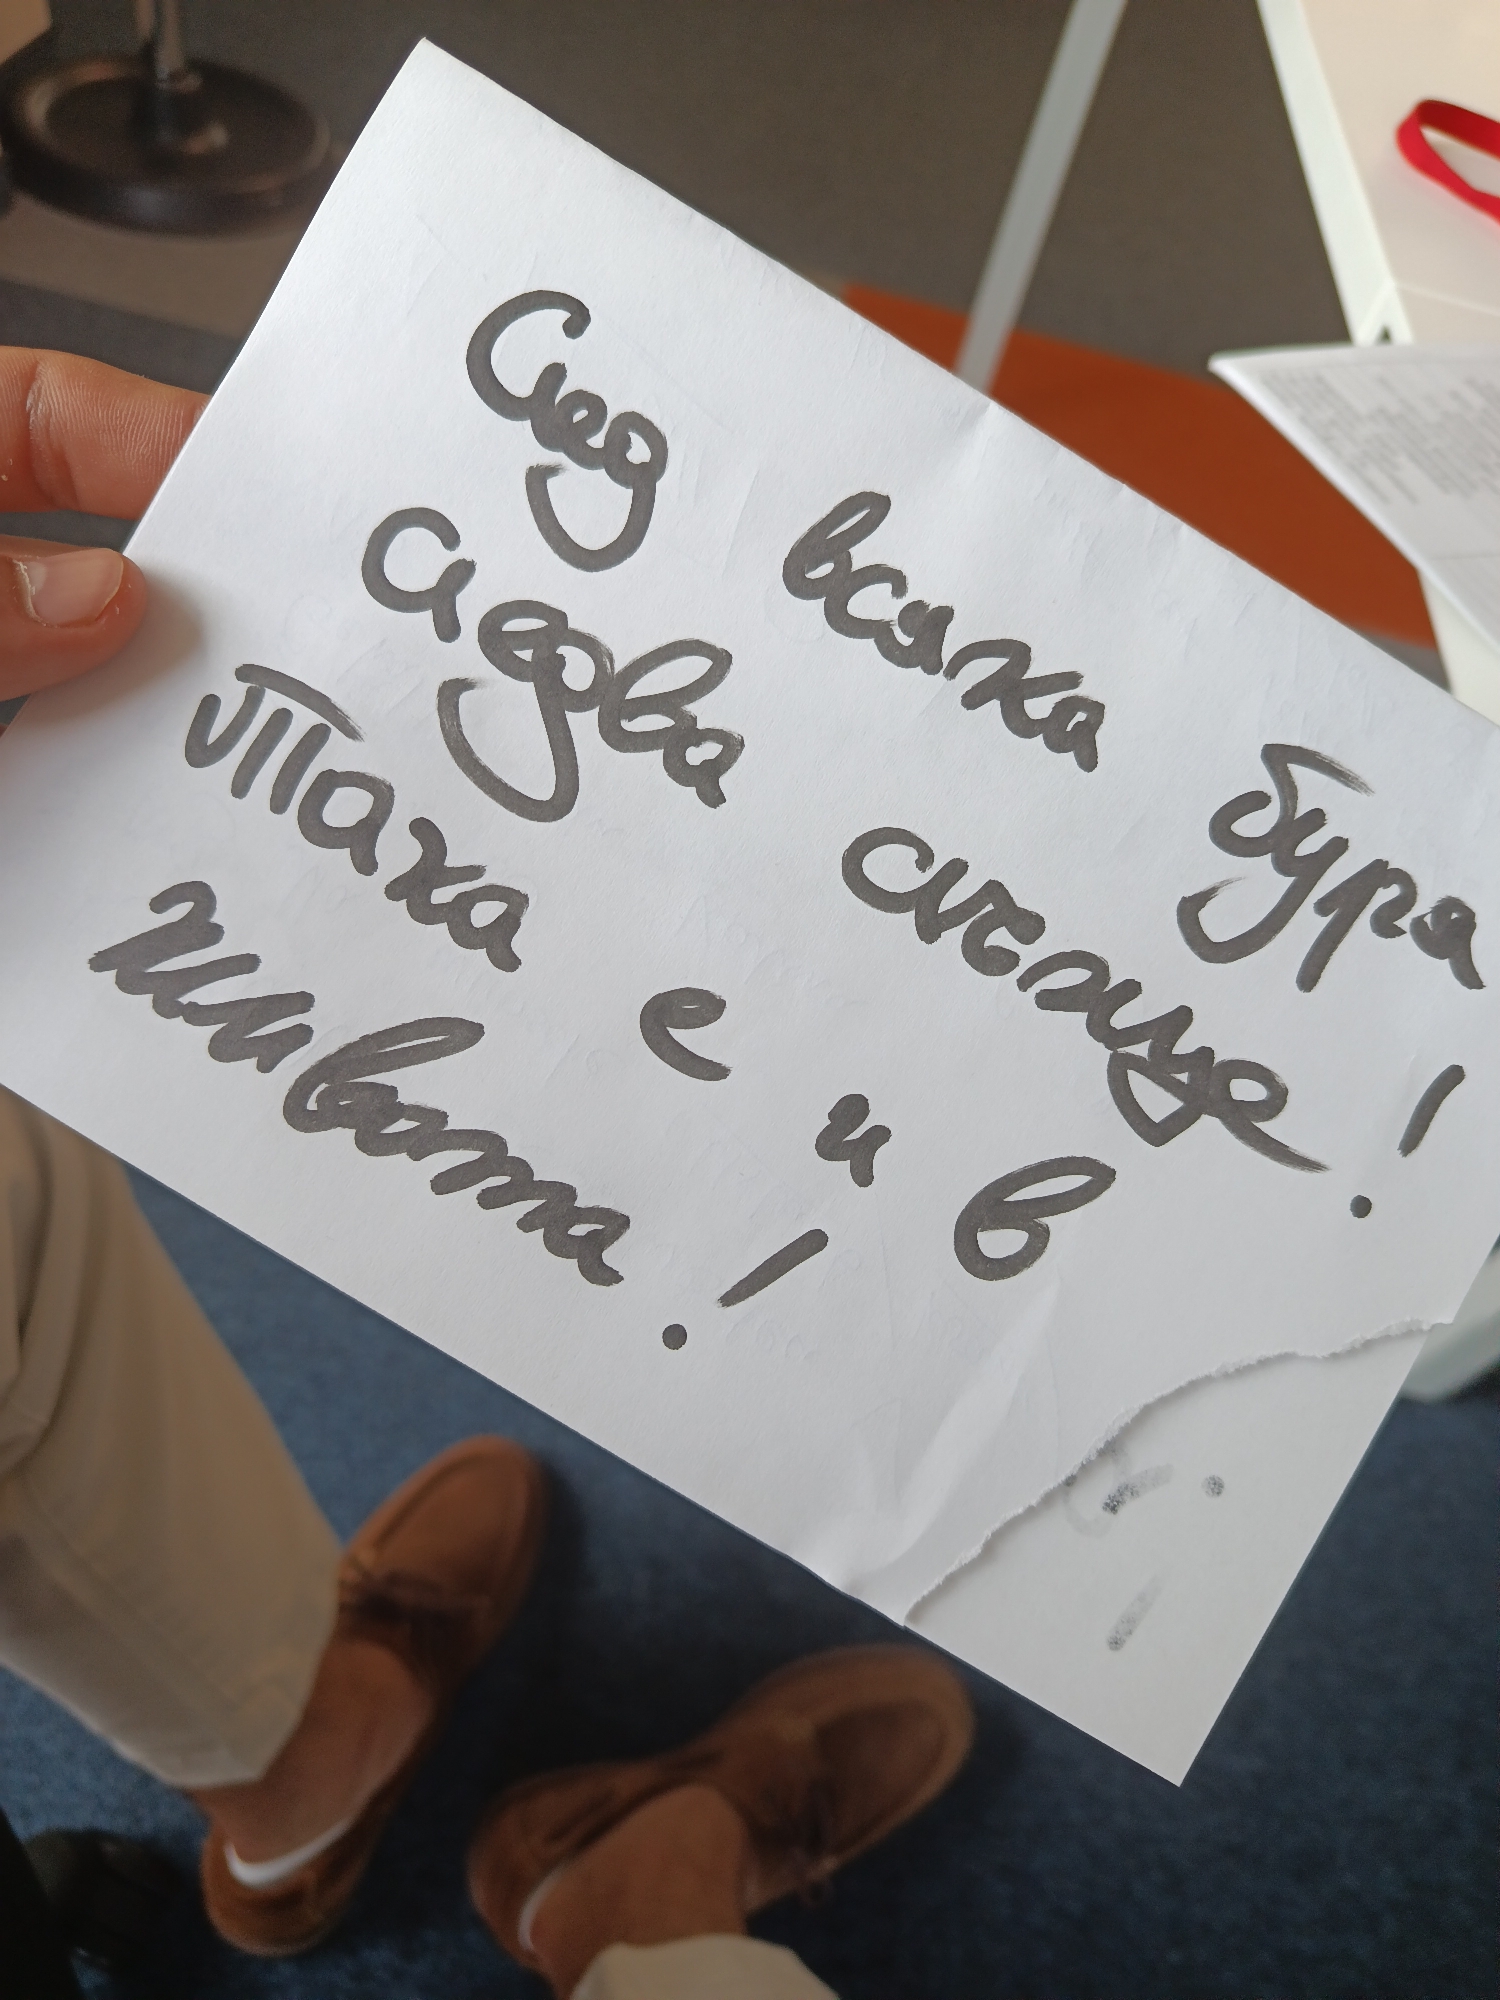 След всяка буря
следва слънце!
Така е и в
живота!